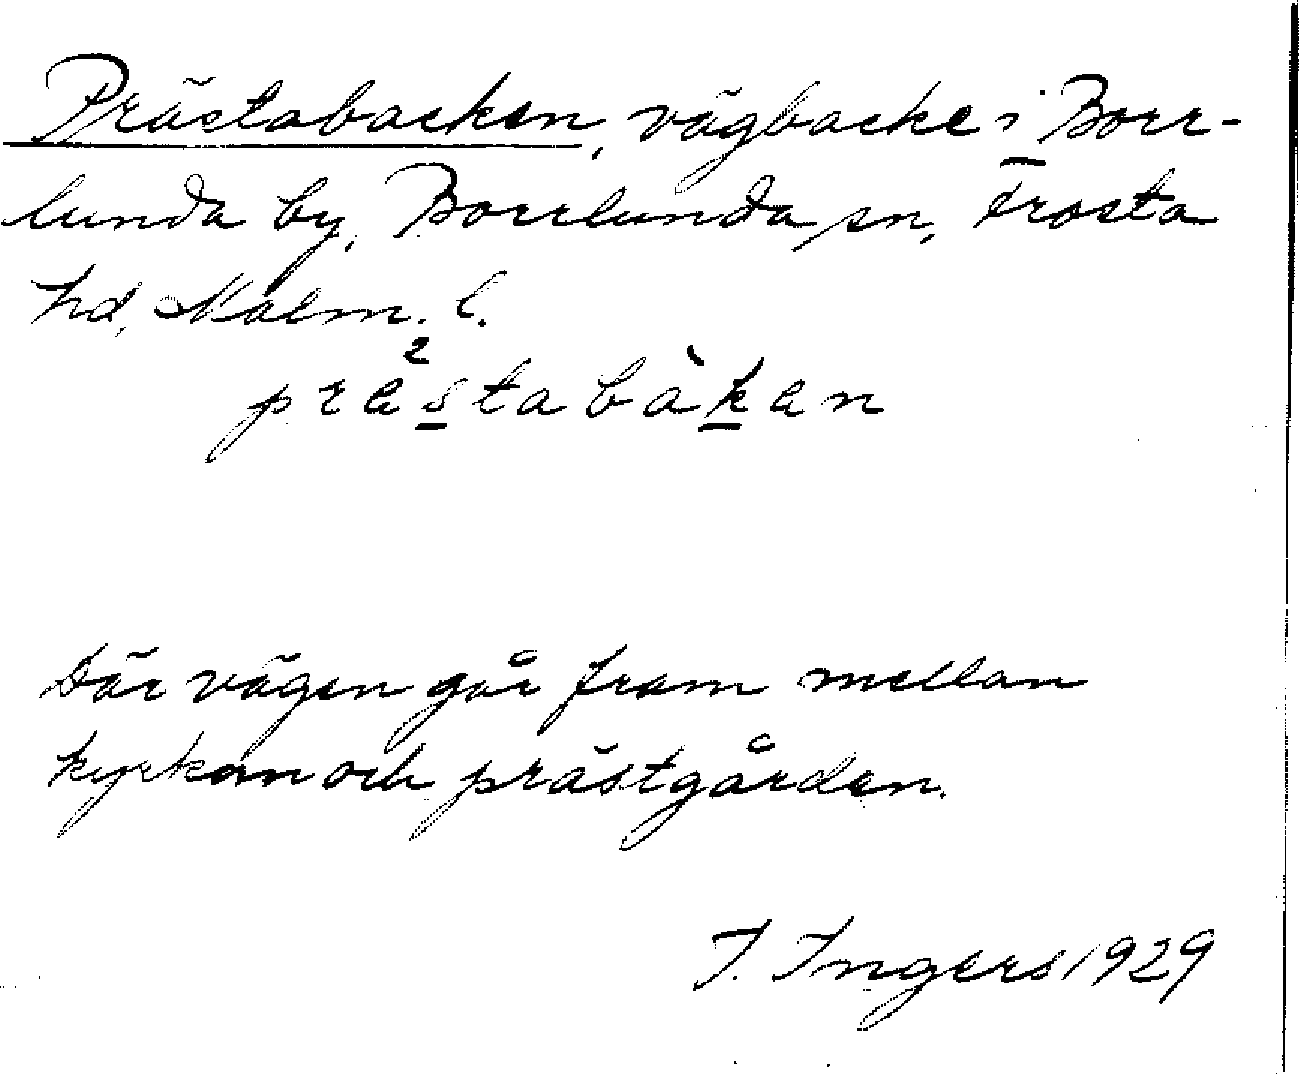 Prästabacken, vägbacke i Borr-
lunda by, Borrlunda sn, Frosta
hd, Malm. l.
präs²tabàken
Där vägen går fram mellan
kyrkan och prästgården.
I. Ingers 1929